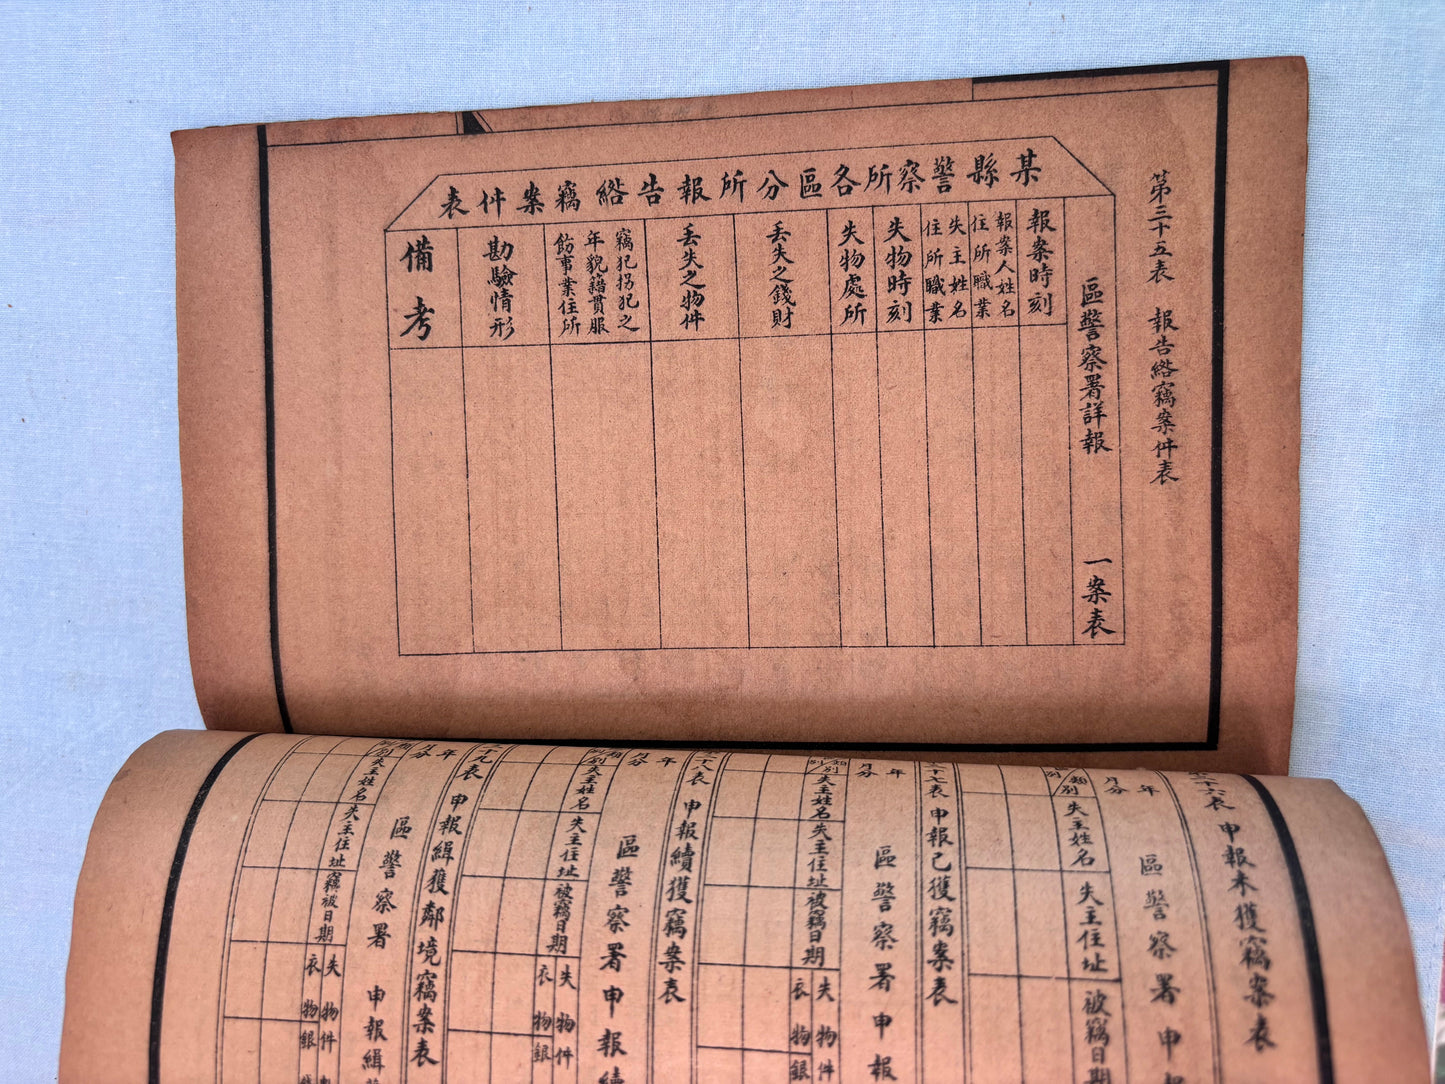 第三十五表 報告綹竊案件表
某縣警察所各區分所報告綹竊案件表
區警察署詳報 一案表
報案時刻
報案人姓名
住所職業
失主姓名
住所職業
失物時刻
失物處所
丟失之錢財
丟失之物件
竊犯拐犯之
年貌籍貫服
飭事業住所
勘驗情形
備考
十六表 申報未獲竊案表
年
月分
區警察署申報
類別
失主姓名
失主住址
被竊日期
十七表 申報已獲竊案表
年
月分
區警察署申報
類別
失主姓名
失主住址
被竊日期
失物件
衣物銀
十八表 申報續獲竊案表
年
月分
區警察署申報續
別
失主姓名
失主住址
被竊日期
失物件
衣物銀
十九表 申報緝獲鄰境竊案表
年
月分
區警察署 申報緝
別
失主姓名
失主住址
竊被日期
失物件
衣物銀